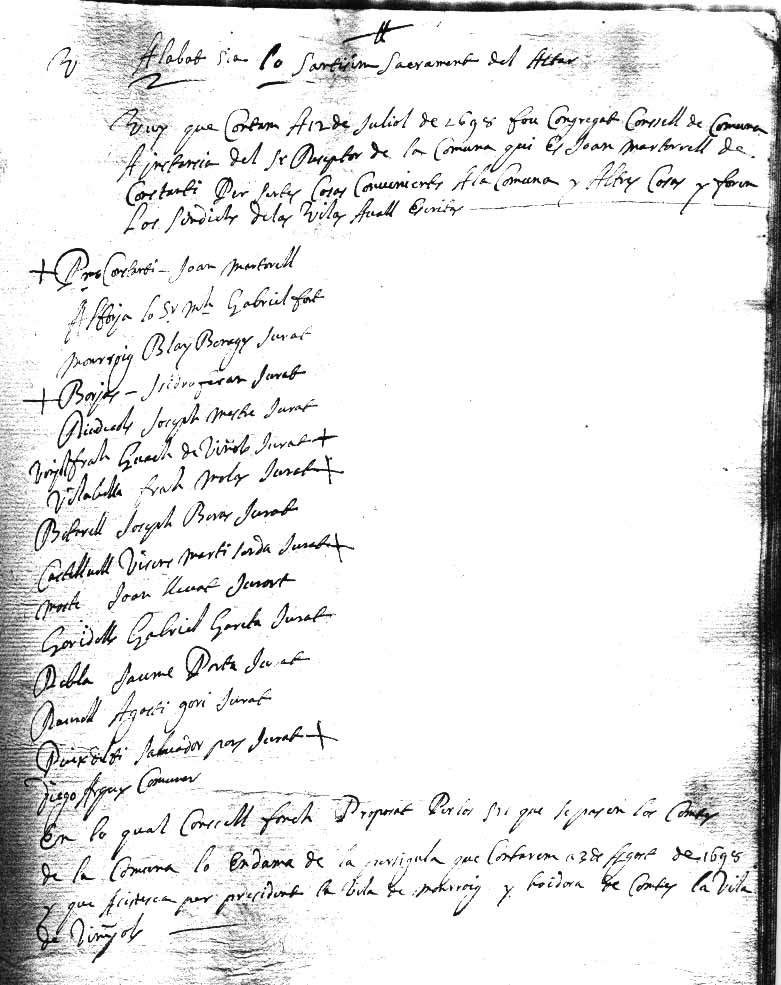 Alabat Sia lo Santisim Sacrament del Altar
Vuy que Contam A 12 de Juliol de 1698 fou Congregat Conssell de Comuna
A instancia del Sr Perceptor de la Comuna qui Es Joan Martorell de
Constanti Per sertes Cosas Convenients A la Comuna y Altres Cosas y foren
Los Sindichs de las Vilas Avall Escrites
+ Pmo Costanti - Joan Martorell
Alforja lo Sr Mh Gabriel fort
Monrroig Blay Boragy Jurat
+ Borjas - Isidro Jurat
Riudcols Joseph Mestre Jurat
fransh Guach de Viñols Jurat +
Vilabella fransh Molas Jurat +
Joseph Jurat
Castellvell Visens Marti Jurat +
Joan Jurat
Gabriel Garcia Jurat
Pobla Jaume Porta Jurat
Raurell Agosti gori Jurat
Salvador pons Jurat +
Diego Comuner
En lo qual Conssell fonch Proposat Per los Srs que se pasen los Contes
de la Comuna lo Endama de la que Contarem a 3 de Agost de 1698
y que Asistesca per president la Vila de Monrroig y hoidora de Contes la Vila
de Viñyols